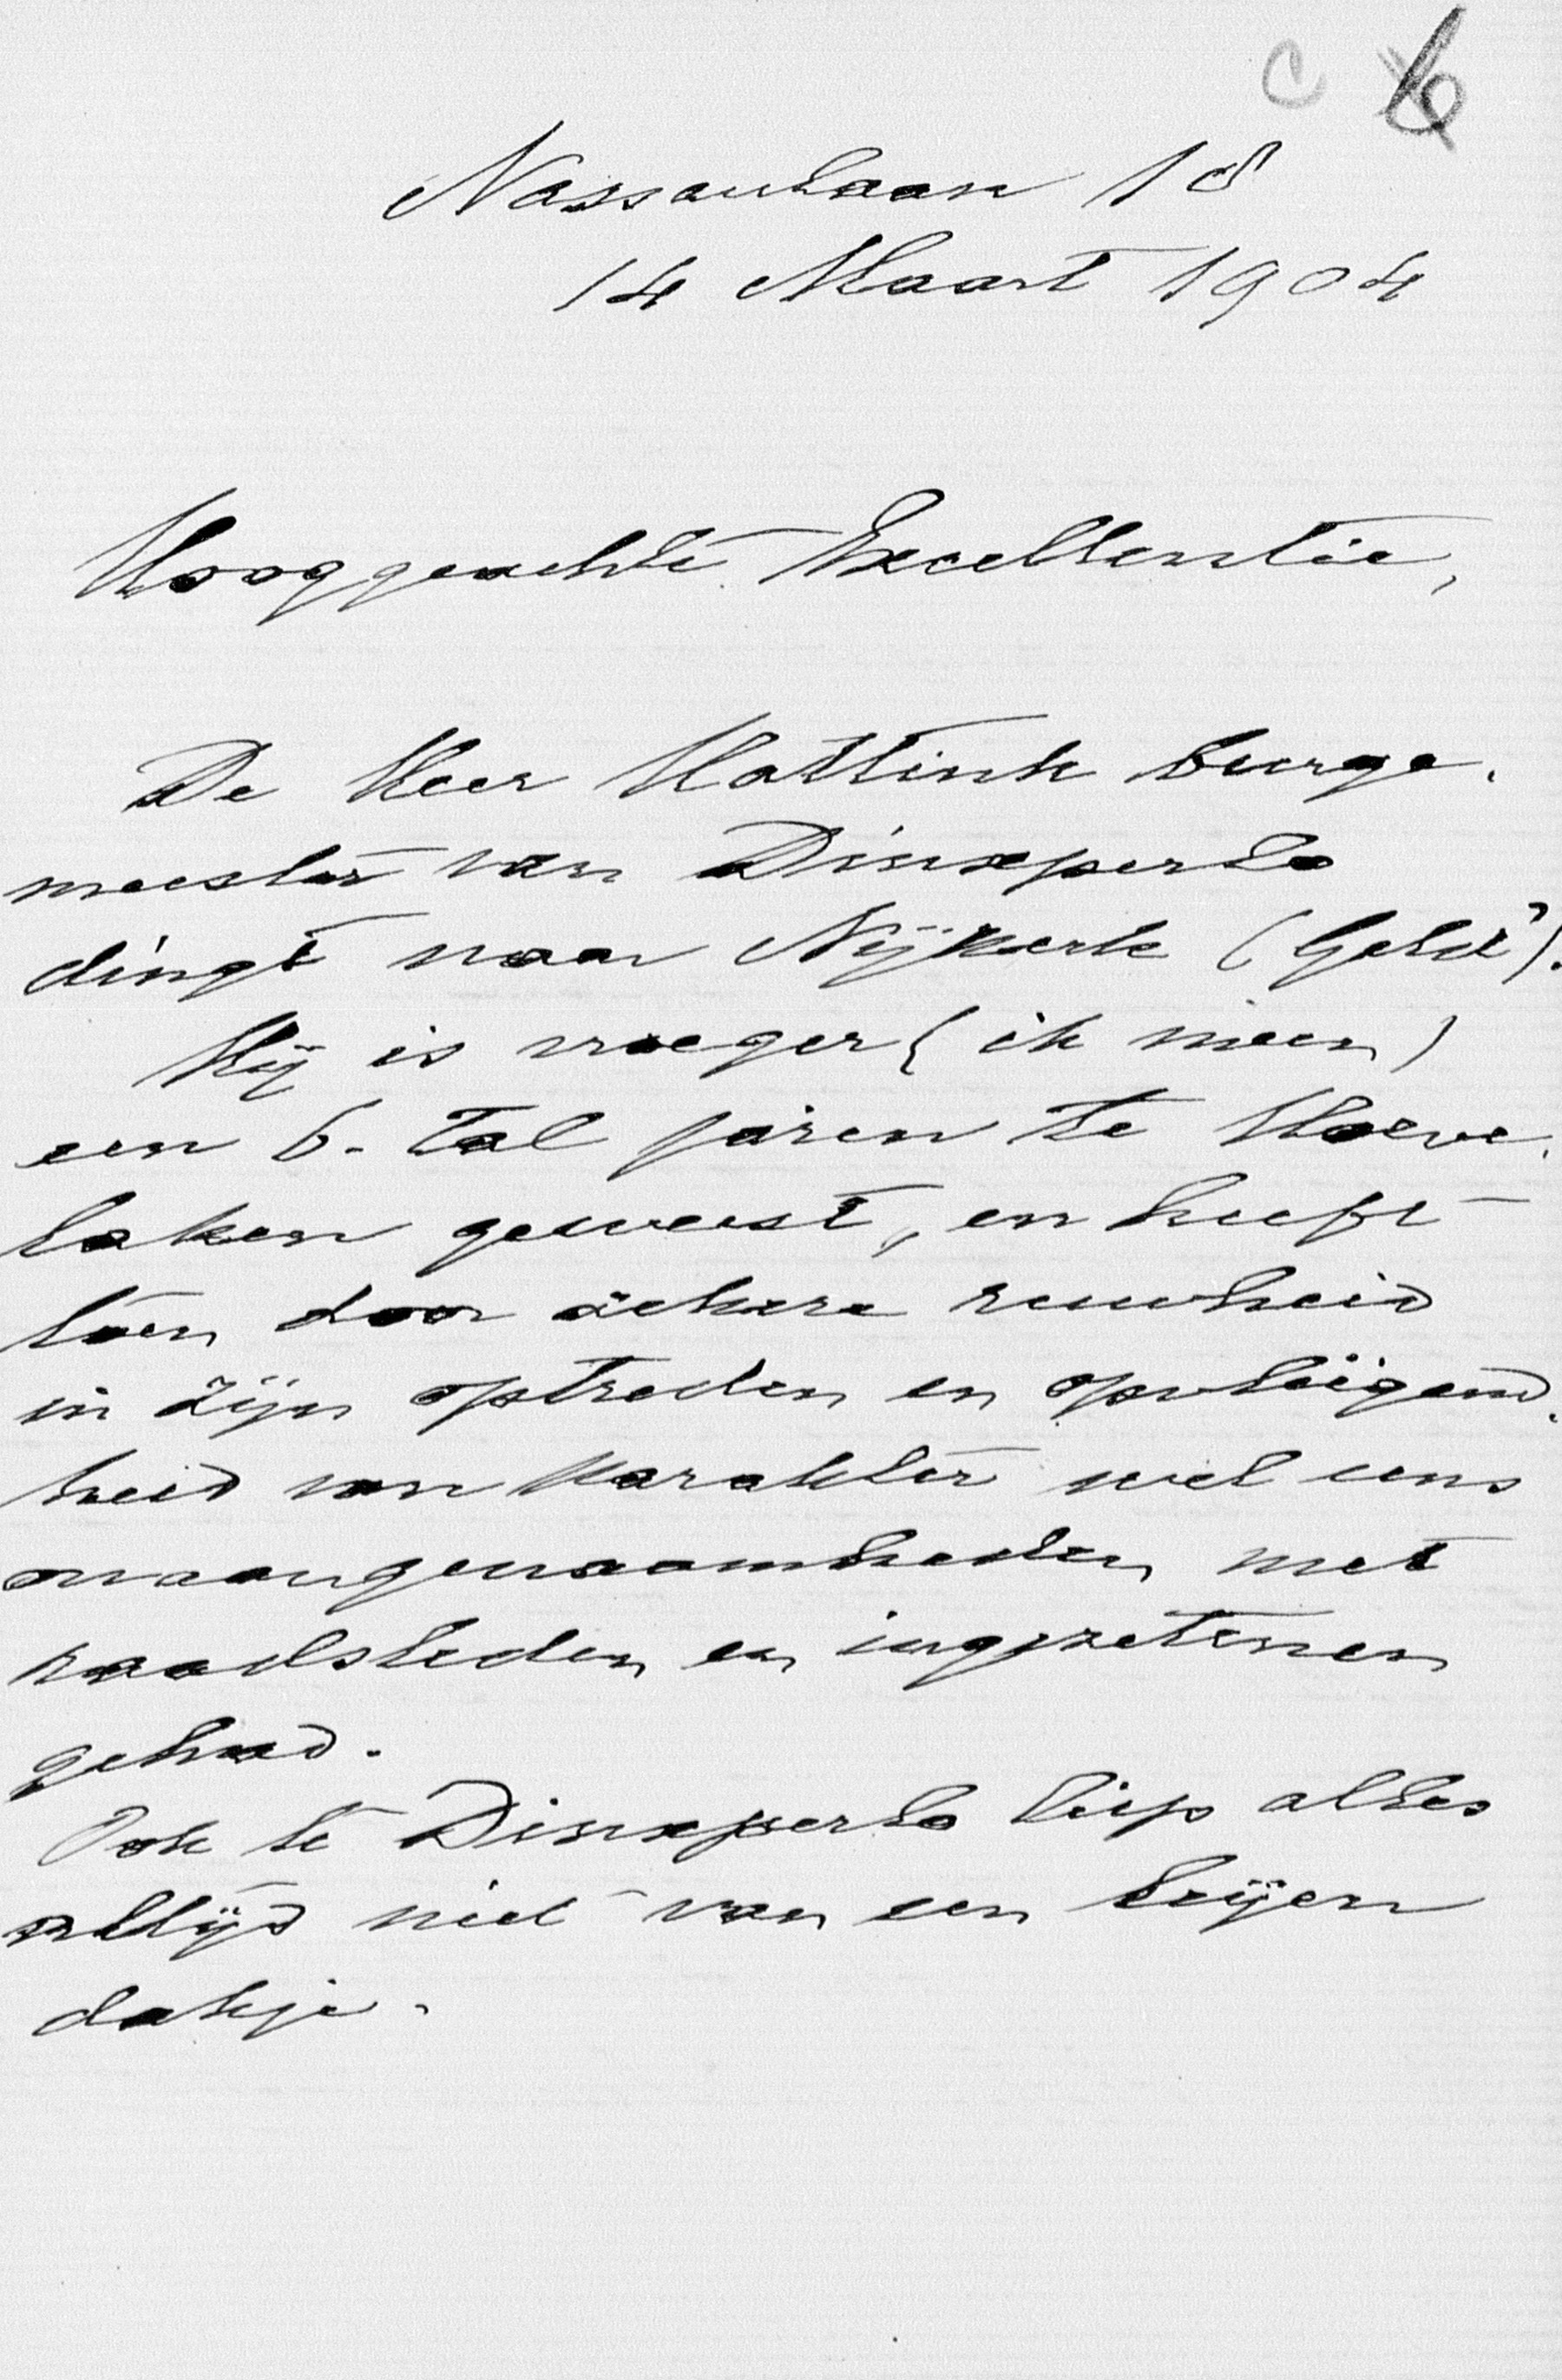 c
Nassaulaan 18
14 Maart 1904
Hooggeachte Excellentie,
De Heer Hattink burge-
meester van Dinxperlo
dingt naar Nijkerk (Geld.).
Hij is vroeger (ik meen)
een 6-tal jaren te Hoeve-
laken geweest, en heeft
toen door zekere ruwheid
in zijn optreden en opvliegend-
heid van karakter wel eens
onaangenaamheden met
raadsleden en ingezetenen
gehad.
Ook te Dinxperlo liep alles
altijd niet van een leijen
dakje.